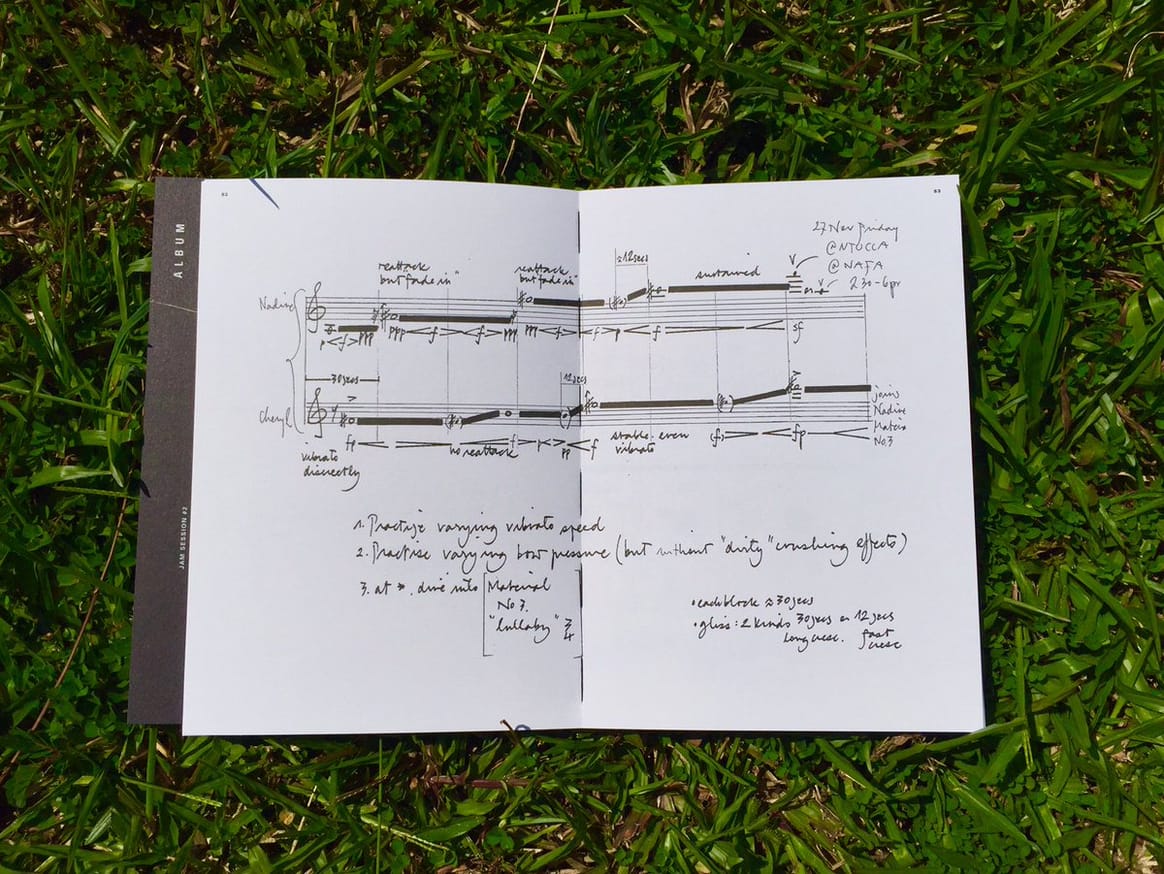 ALBUM
JAM SESSION #2
52
53
27 Nov Friday
@NTUCCA
@NAFA
2 30-6pm
reattack
but fade in
reattack
but fade in
≈12secs
sustained
Nadine
p f ppp
ppp f f ppp
ppp f f p f
sf
30secs
12secs
Cheryl
fp
no reattack
f p pp f
stable, even
vibrato
(f) fp
joins
Nadine
Material
No.3
vibrato
discreetly
1. Practise varying vibrato speed
2. Practise varying bow pressure (but without "dirty" crushing effects)
3. at *. dive into Material
No 3.
"lullaby" 3/4
• each block ≈ 30secs
• gliss: 2 kinds 30secs or 12secs
long cresc. fast
cresc